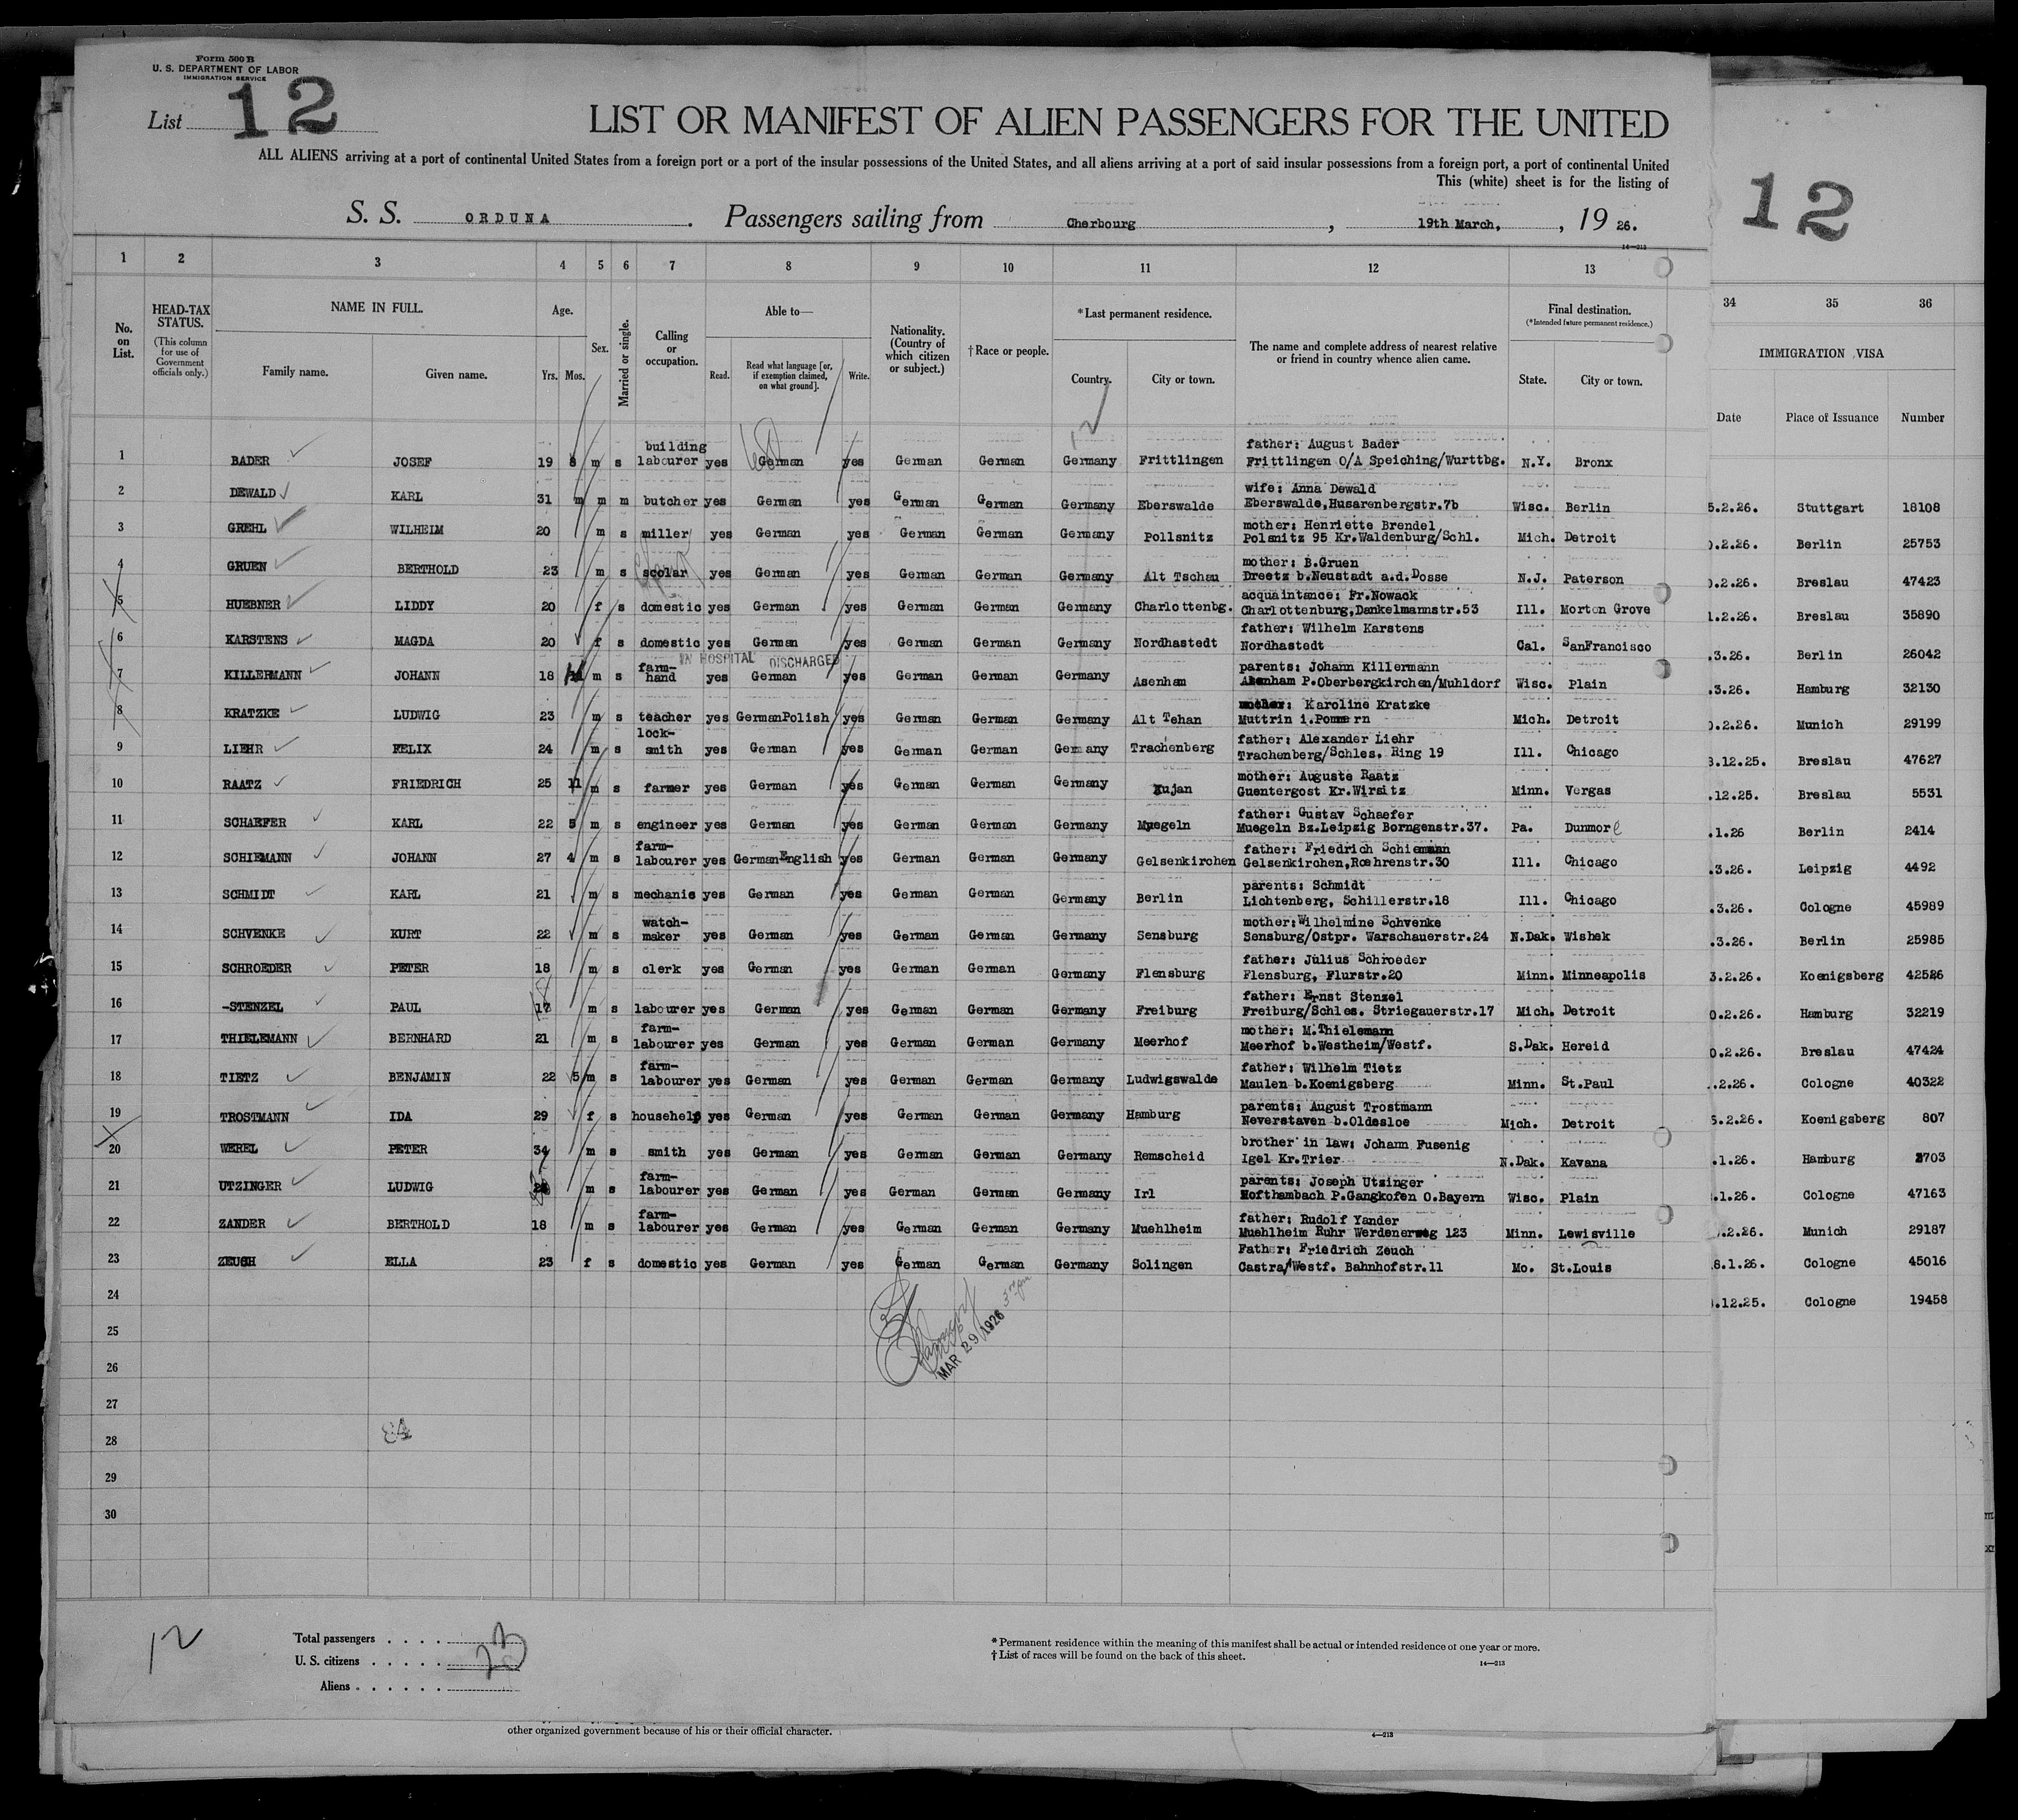 Form 500 B
U. S. DEPARTMENT OF LABOR
IMMIGRATION SERVICE
List 12
LIST OR MANIFEST OF ALIEN PASSENGERS FOR THE UNITED
ALL ALIENS arriving at a port of continental United States from a foreign port or a port of the insular possessions of the United States, and all aliens arriving at a port of said insular possessions from a foreign port, a port of continental United
This (white) sheet is for the listing of
12
S. S. ORDUNA. Passengers sailing from Cherbourg, 19th March, , 19 26.
14—213
1 2 3 4 5 6 7 8 9 10 11 12 13
34 35 36
No. on List.
HEAD-TAX STATUS. (This column for use of Government officials only.)
NAME IN FULL.
Family name. Given name.
Age. Yrs. Mos.
Sex.
Married or single.
Calling or occupation.
Able to—
Read. Read what language [or, if exemption claimed, on what ground]. Write.
Nationality. (Country of which citizen or subject.)
†Race or people.
*Last permanent residence.
Country. City or town.
The name and complete address of nearest relative or friend in country whence alien came.
Final destination.
(*Intended future permanent residence.)
State. City or town.
IMMIGRATION VISA
Date Place of Issuance Number
building father: August Bader
1 BADER JOSEF 19 8 m s labourer yes German yes German German Germany Frittlingen Frittlingen O/A Speiching/Wurttbg. N.Y. Bronx
wife: Anna Dewald
2 DEWALD KARL 31 m m m butcher yes German yes German German Germany Eberswalde Eberswalde,Husarenbergstr.7b Wisc. Berlin
5.2.26. Stuttgart 18108
mother: Henriette Brendel
3 GREHL WILHELM 20 m s miller yes German yes German German Germany Pollsnitz Polsnitz 95 Kr.Waldenburg/Schl. Mich. Detroit
0.2.26. Berlin 25753
mother: B.Gruen
4 GRUEN BERTHOLD 23 m s scolar yes German yes German German Germany Alt Tschau Dreetz b.Neustadt a.d.Dosse N.J. Paterson
0.2.26. Breslau 47423
acquaintance: Fr.Nowack
5 HUEBNER LIDDY 20 f s domestic yes German yes German German Germany Charlottenbg. Charlottenburg,Dankelmannstr.53 Ill. Morton Grove
1.2.26. Breslau 35890
father: Wilhelm Karstens
6 KARSTENS MAGDA 20 f s domestic yes German yes German German Germany Nordhastedt Nordhastedt Cal. SanFrancisco
.3.26. Berlin 26042
IN HOSPITAL DISCHARGED
farm- parents: Johann Killermann
7 KILLERMANN JOHANN 18 m s hand yes German yes German German Germany Asenham Asenham P.Oberbergkirchen/Muhldorf Wisc. Plain
.3.26. Hamburg 32130
mother: Karoline Kratzke
8 KRATZKE LUDWIG 23 m s teacher yes GermanPolish yes German German Germany Alt Tehan Muttrin i.Pommern Mich. Detroit
0.2.26. Munich 29199
lock- father: Alexander Liehr
9 LIEHR FELIX 24 m s smith yes German yes German German Germany Trachenberg Trachenberg/Schles. Ring 19 Ill. Chicago
3.12.25. Breslau 47627
mother: Auguste Raatz
10 RAATZ FRIEDRICH 25 11 m s farmer yes German yes German German Germany Kujan Guentergost Kr.Wirsitz Minn. Vergas
.12.25. Breslau 5531
father: Gustav Schaefer
11 SCHAEFER KARL 22 5 m s engineer yes German yes German German Germany Muegeln Muegeln Bz.Leipzig Borngenstr.37. Pa. Dunmore
.1.26 Berlin 2414
farm- father: Friedrich Schiemann
12 SCHIEMANN JOHANN 27 4 m s labourer yes GermanEnglish yes German German Germany Gelsenkirchen Gelsenkirchen,Roehrenstr.30 Ill. Chicago
.3.26. Leipzig 4492
parents: Schmidt
13 SCHMIDT KARL 21 m s mechanic yes German yes German German Germany Berlin Lichtenberg, Schillerstr.18 Ill. Chicago
.3.26. Cologne 45989
watch- mother:Wilhelmine Schvenke
14 SCHVENKE KURT 22 m s maker yes German yes German German Germany Sensburg Sensburg/Ostpr. Warschauerstr.24 N.Dak. Wishek
.3.26. Berlin 25985
father: Julius Schroeder
15 SCHROEDER PETER 18 m s clerk yes German yes German German Germany Flensburg Flensburg, Flurstr.20 Minn. Minneapolis
3.2.26. Koenigsberg 42526
father: Ernst Stenzel
16 -STENZEL PAUL 17 m s labourer yes German yes German German Germany Freiburg Freiburg/Schles. Striegauerstr.17 Mich. Detroit
0.2.26. Hamburg 32219
farm- mother: M.Thielemann
17 THIELEMANN BERNHARD 21 m s labourer yes German yes German German Germany Meerhof Meerhof b.Westheim/Westf. S.Dak. Hereid
0.2.26. Breslau 47424
farm- father: Wilhelm Tietz
18 TIETZ BENJAMIN 22 5 m s labourer yes German yes German German Germany Ludwigswalde Maulen b.Koenigsberg Minn. St.Paul
.2.26. Cologne 40322
parents: August Trostmann
19 TROSTMANN IDA 29 f s househelp yes German yes German German Germany Hamburg Neverstaven b.Oldesloe Mich. Detroit
5.2.26. Koenigsberg 807
brother in law: Johann Fusenig
20 WEREL PETER 34 m s smith yes German yes German German Germany Remscheid Igel Kr.Trier N.Dak. Kavana
.1.26. Hamburg 2703
farm- parents: Joseph Utzinger
21 UTZINGER LUDWIG m s labourer yes German yes German German Germany Irl Hofthambach P.Gangkofen O.Bayern Wisc. Plain
.1.26. Cologne 47163
farm- father: Rudolf Yander
22 ZANDER BERTHOLD 18 m s labourer yes German yes German German Germany Muehlheim Muehlheim Ruhr Werdenerweg 123 Minn. Lewisville
.2.26. Munich 29187
Father: Friedrich Zeuch
23 ZEUCH ELLA 23 f s domestic yes German yes German German Germany Solingen Castra/Westf. Bahnhofstr.11 Mo. St.Louis
8.1.26. Cologne 45016
24
.12.25. Cologne 19458
25
MAR 29 1926
26
27
28
29
30
12
Total passengers . . . . 23
U. S. citizens . . . . .
Aliens . . . . . .
*Permanent residence within the meaning of this manifest shall be actual or intended residence of one year or more.
†List of races will be found on the back of this sheet.
14—213
other organized government because of his or their official character.
4—213